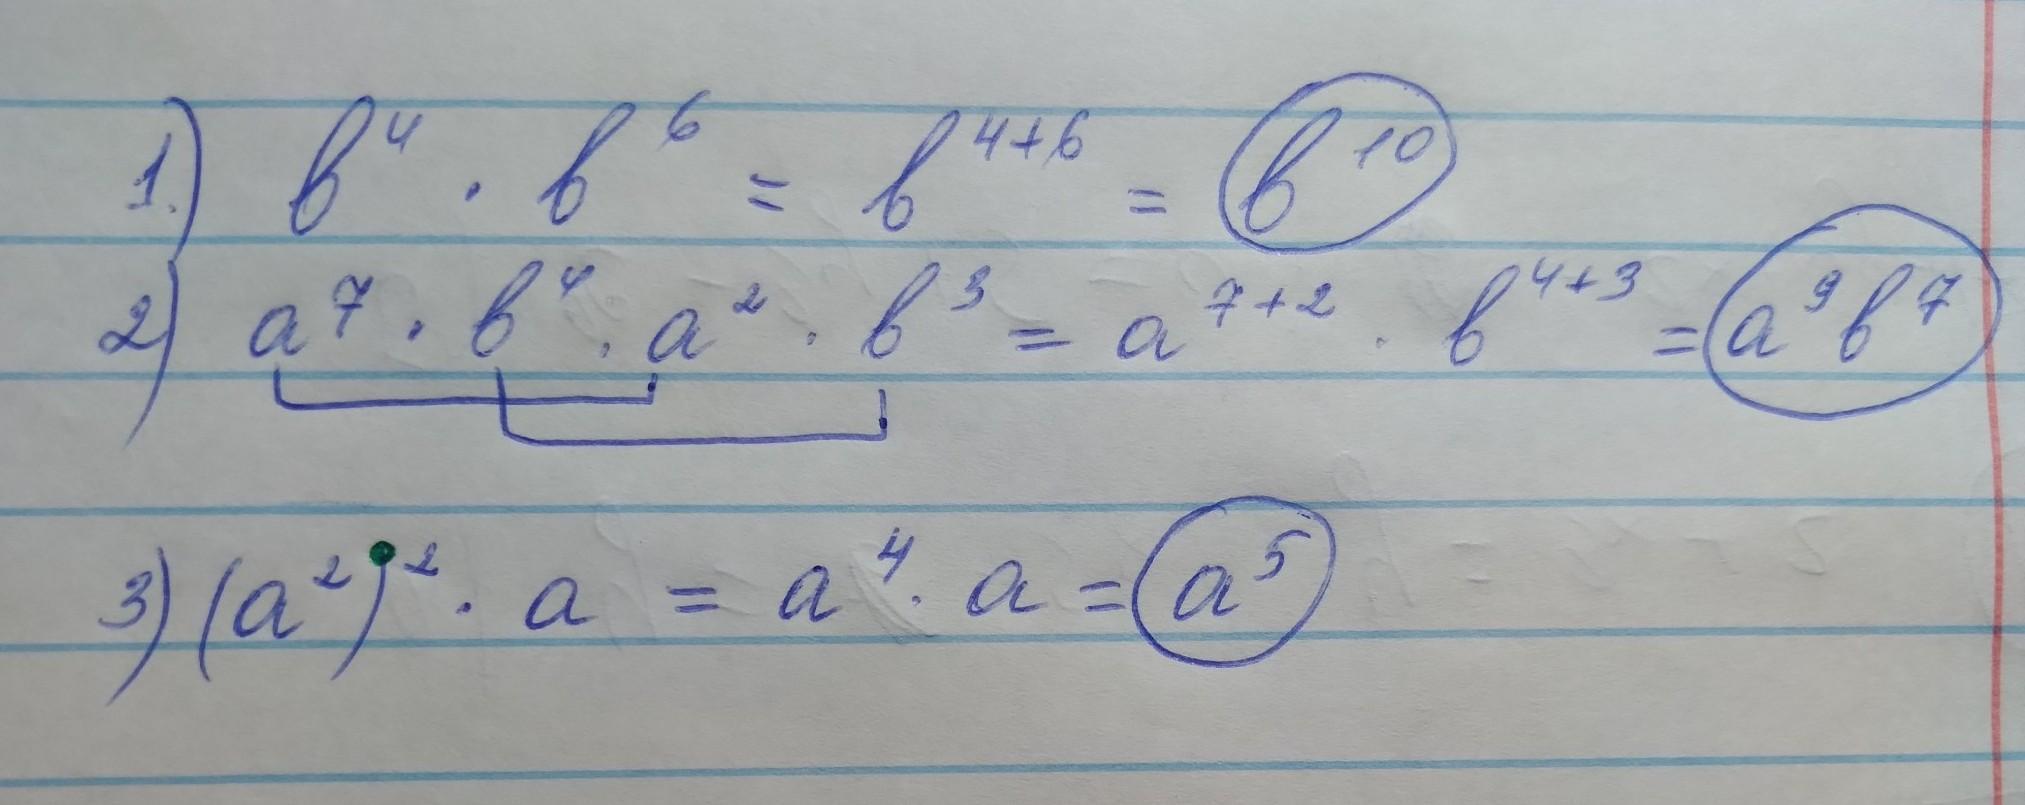 1.) b⁴ · b⁶ = b⁴⁺⁶ = b¹⁰
2) a⁷ · b⁴ · a² · b³ = a⁷⁺² · b⁴⁺³ = a⁹b⁷
3) (a²)² · a = a⁴ · a = a⁵